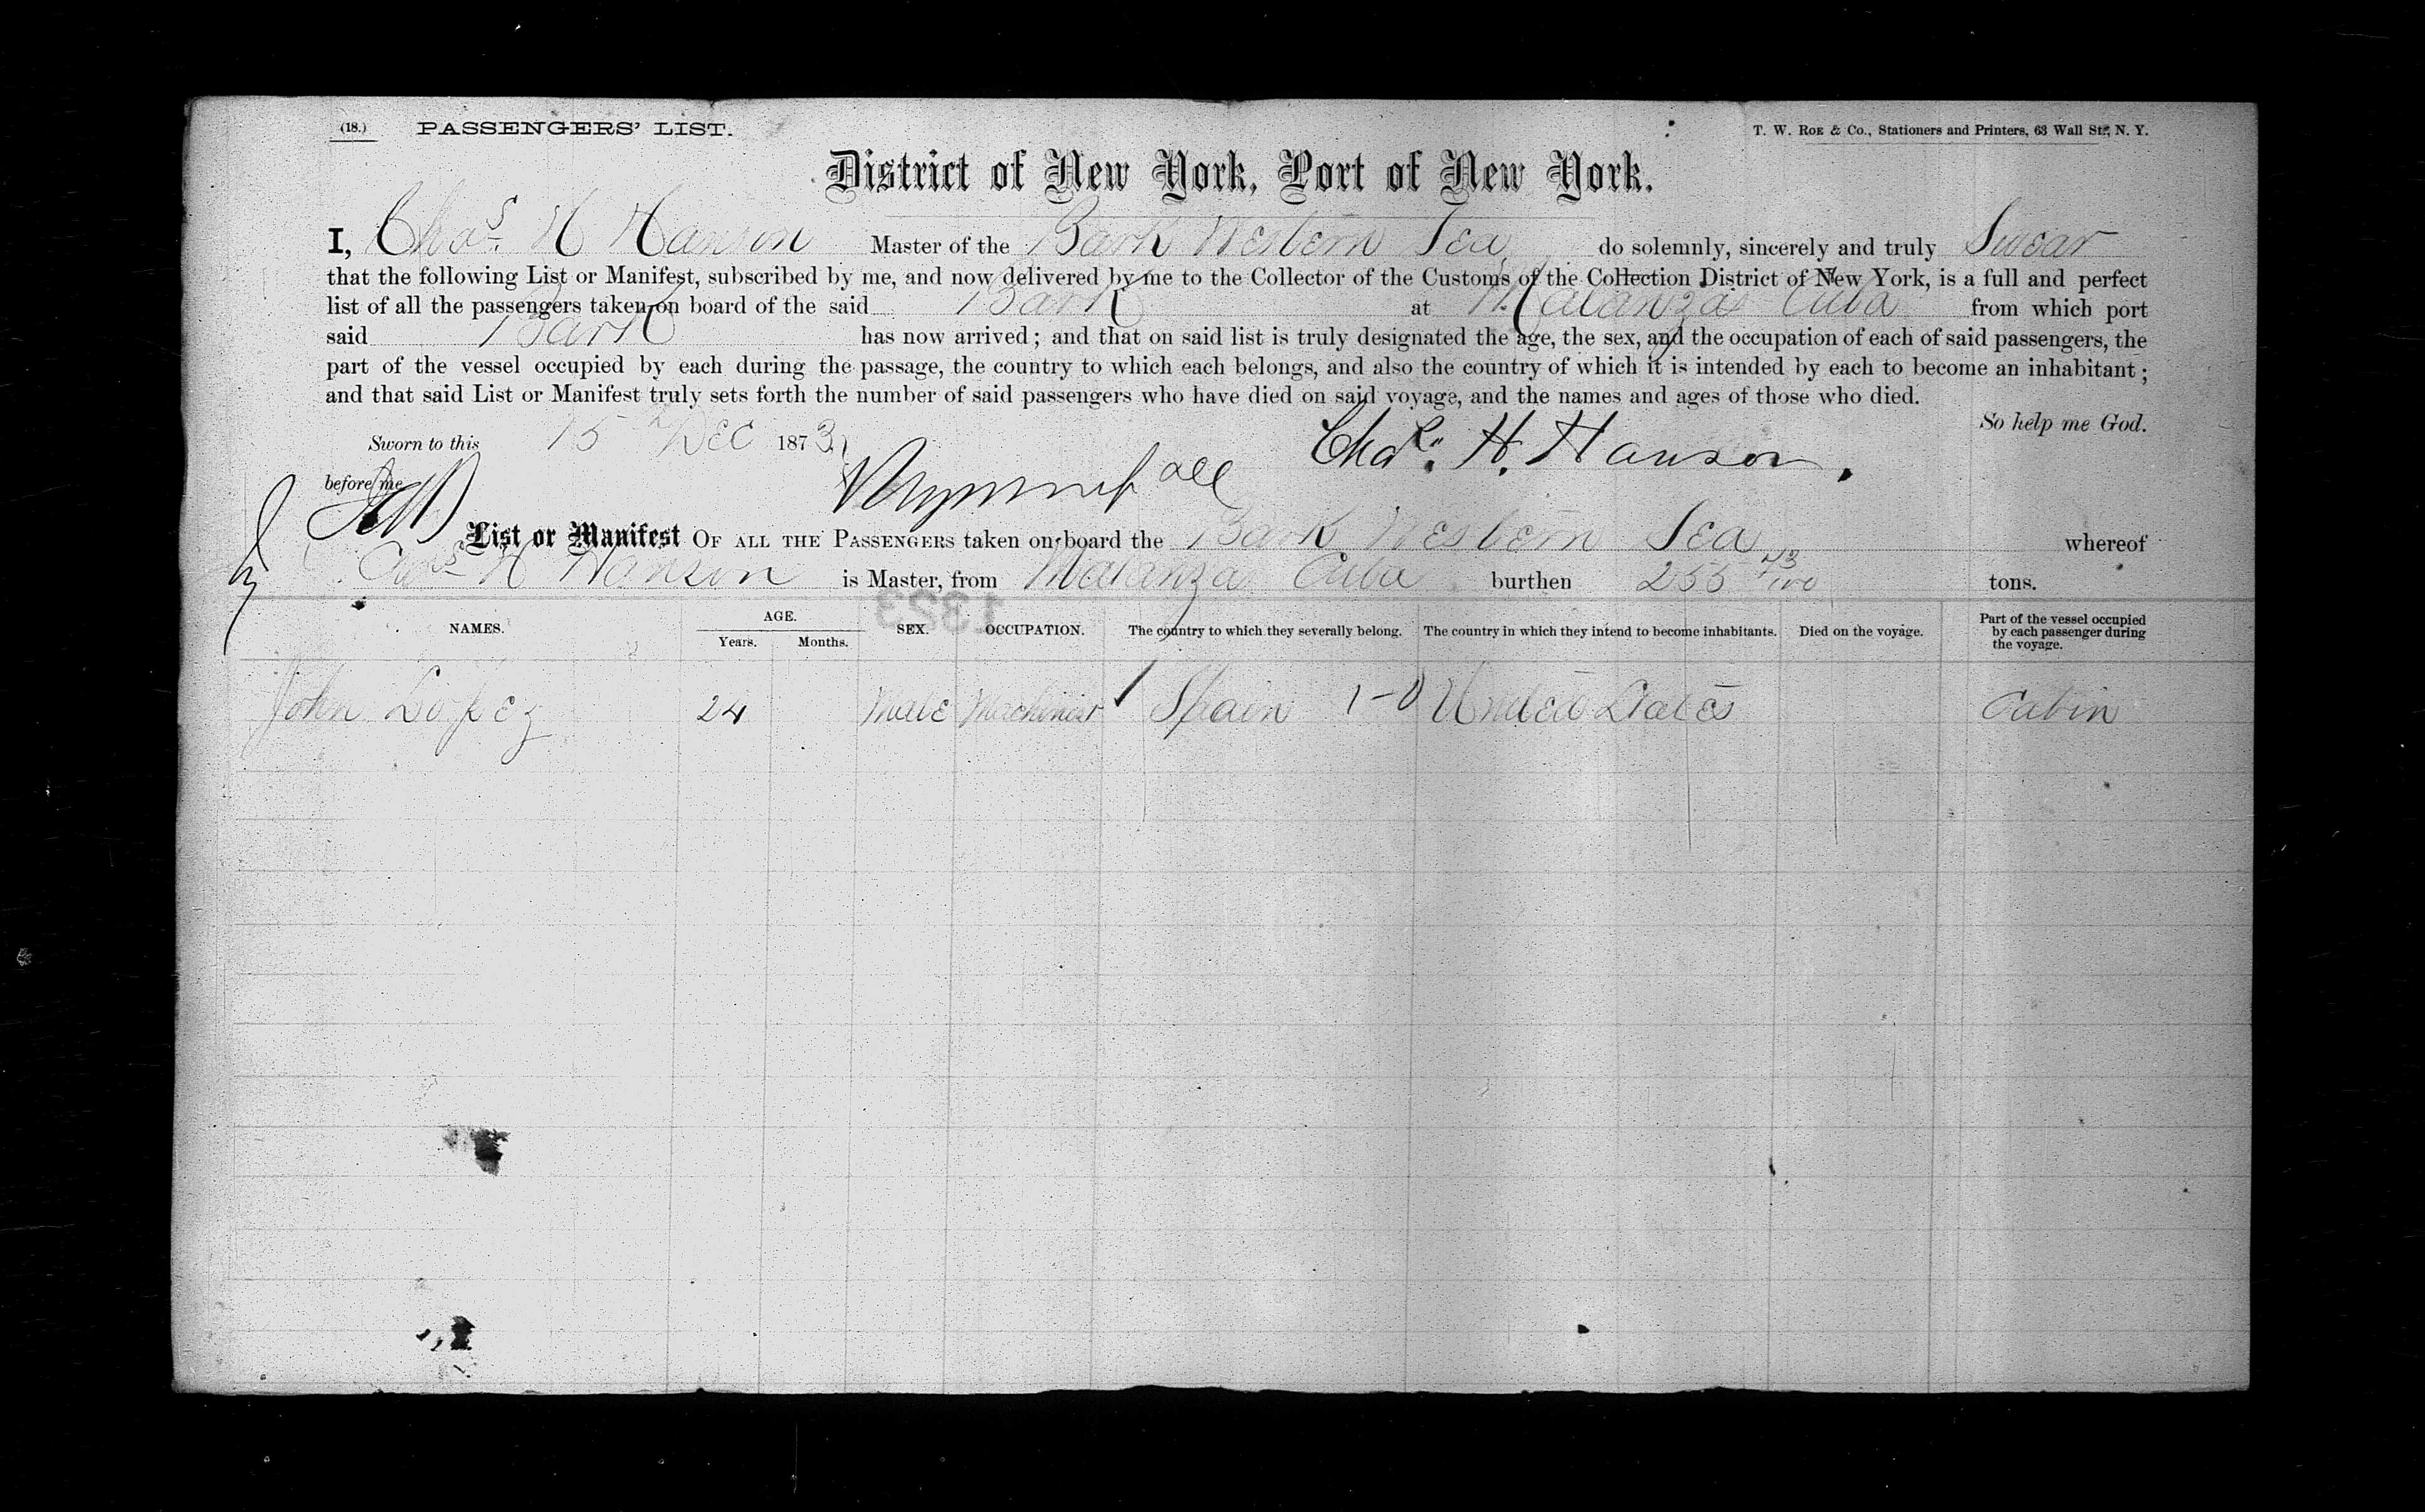 (18.) PASSENGERS' LIST. T. W. ROE & CO., Stationers and Printers, 63 Wall St., N. Y.
District of New York, Port of New York.
I, Chas. H Hanson Master of the Bark Western Sea do solemnly, sincerely and truly Swear
that the following List or Manifest, subscribed by me, and now delivered by me to the Collector of the Customs of the Collection District of New York, is a full and perfect
list of all the passengers taken on board of the said Bark at Matanzas Cuba from which port
said Bark has now arrived; and that on said list is truly designated the age, the sex, and the occupation of each of said passengers, the
part of the vessel occupied by each during the passage, the country to which each belongs, and also the country of which it is intended by each to become an inhabitant;
and that said List or Manifest truly sets forth the number of said passengers who have died on said voyage, and the names and ages of those who died.
So help me God.
Sworn to this 15 Dec 1873
Chas. H. Hanson.
before me
List or Manifest OF ALL THE PASSENGERS taken on board the Bark Western Sea whereof
Chas H Hanson is Master, from Matanza Cuba burthen 255 43/100 tons.
1323
NAMES. AGE. Years. Months. SEX. OCCUPATION. The country to which they severally belong. The country in which they intend to become inhabitants. Died on the voyage. Part of the vessel occupied by each passenger during the voyage.
John Lopez 24 Male Machinist Spain 1-0 United States Cabin